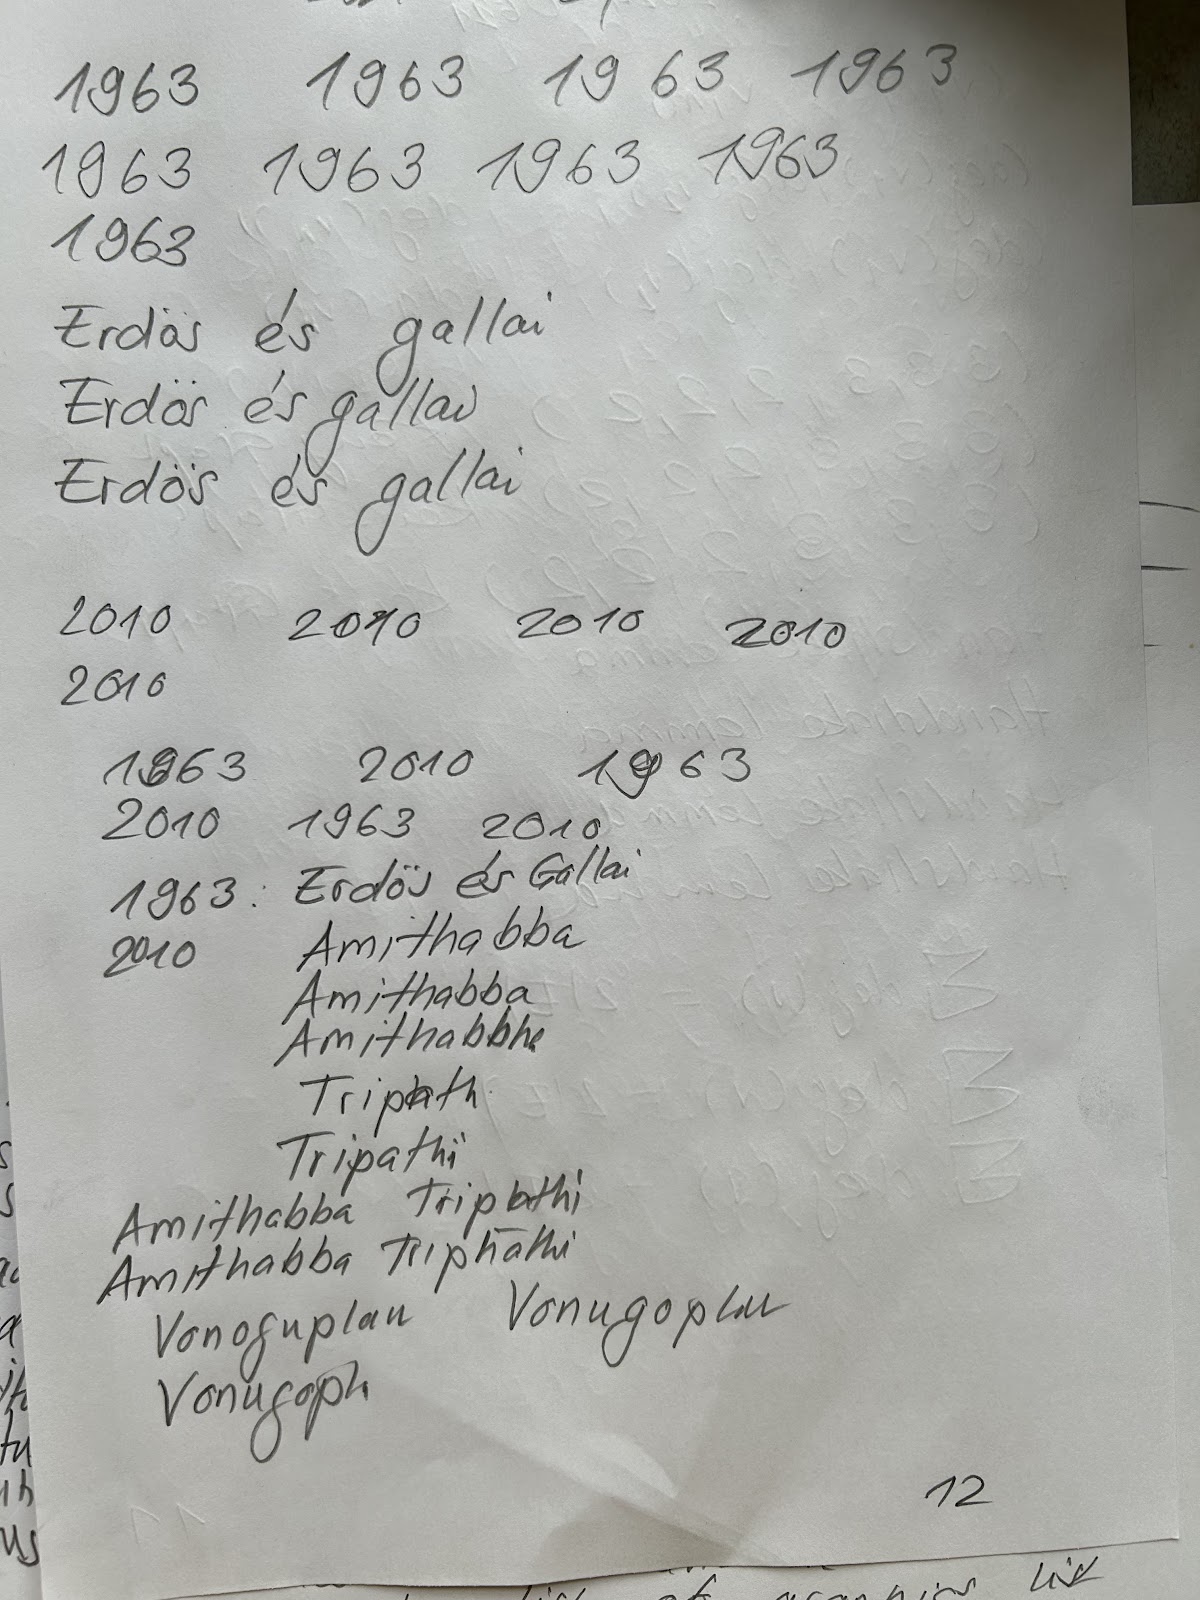 1963 1963 1963 1963
1963 1963 1963 1963
1963
Erdös és gallai
Erdös és gallai
Erdös és gallai
2010 2010 2010 2010
2010
1963 2010 1963
2010 1963 2010
1963: Erdös és Gallai
2010 Amithabba
Amithabba
Amithabbha
Tripath
Tripathi
Amithabba Tripathi
Amithabba Triphathi
Vonoguplan Vonugoplan
Vonugoph
12
of graphing list